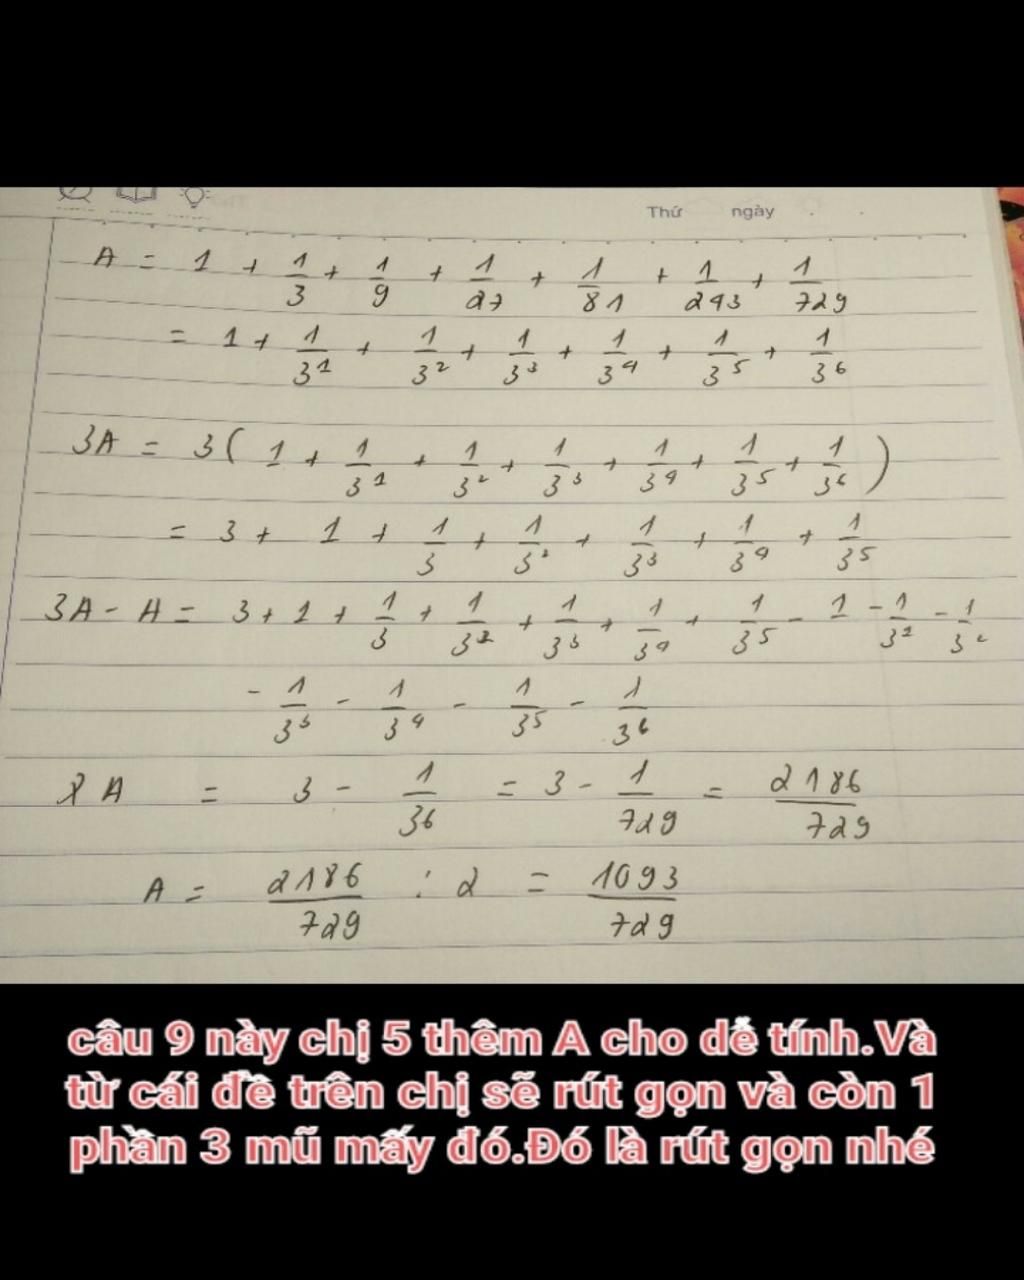 Thứ ngày
A = 1 + 1/3 + 1/9 + 1/27 + 1/81 + 1/243 + 1/729
= 1 + 1/3¹ + 1/3² + 1/3³ + 1/3⁴ + 1/3⁵ + 1/3⁶
3A = 3( 1 + 1/3¹ + 1/3² + 1/3³ + 1/3⁴ + 1/3⁵ + 1/3⁶ )
= 3 + 1 + 1/3 + 1/3² + 1/3³ + 1/3⁴ + 1/3⁵
3A - A = 3 + 1 + 1/3 + 1/3² + 1/3³ + 1/3⁴ + 1/3⁵ - 1 - 1/3¹ - 1/3²
- 1/3³ - 1/3⁴ - 1/3⁵ - 1/3⁶
2A = 3 - 1/3⁶ = 3 - 1/729 = 2186/729
A = 2186/729 : 2 = 1093/729
câu 9 này chị 5 thêm A cho dễ tính.Và
từ cái đề trên chị sẽ rút gọn và còn 1
phần 3 mũ mấy đó.Đó là rút gọn nhé